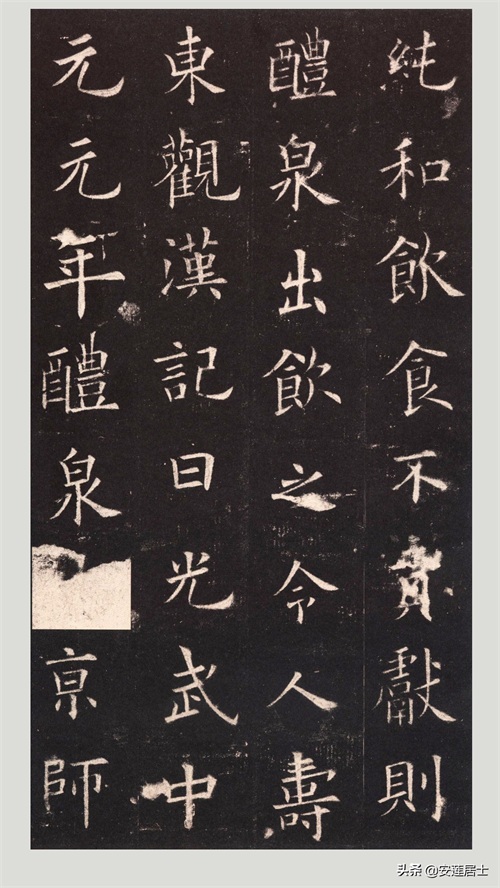 純和飲食不貢獻則
醴泉出飲之令人壽
東觀漢記曰光武中
元元年醴泉亰師
头条 @安莲居士